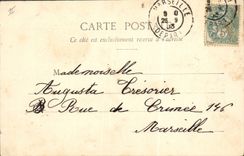 CARTE POSTALE
Ce côté est exclusivement réservé à l'adresse
MARSEILLE
9 D
25 9
03
DÉPART
Mademoiselle
Augusta Trésorier
B Rue de Crimée 146
Marseille